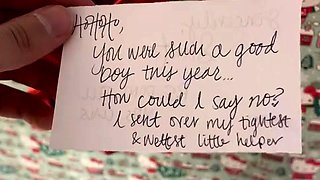 HoHoHo,
You were such a good
boy this year...
How could I say no?
I sent over my tightest
& wettest little helper